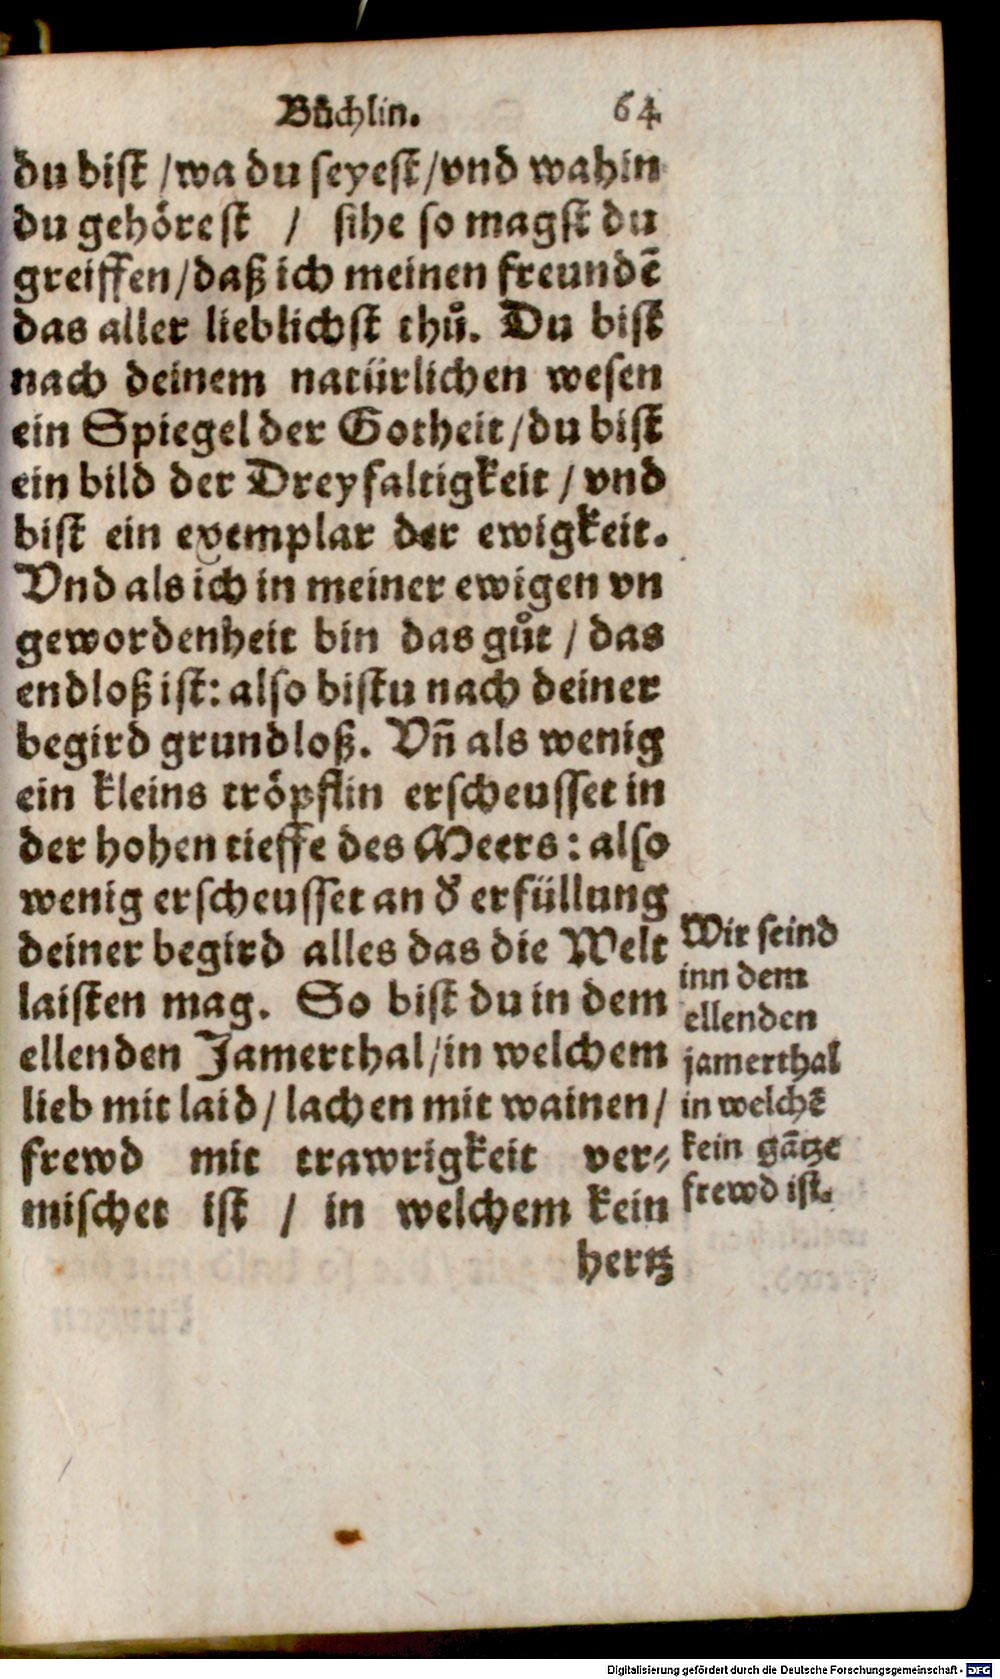 Bůchlin. 64
du bist / wa du seyest / vnd wahin
du gehörest / sihe so magst du
greiffen / daß ich meinen freundẽ
das aller lieblichst thů. Du bist
nach deinem natürlichen wesen
ein Spiegel der Gotheit / du bist
ein bild der Dreyfaltigkeit / vnd
bist ein exemplar der ewigkeit.
Vnd als ich in meiner ewigen vn
gewordenheit bin das gůt / das
endloß ist: also bistu nach deiner
begird grundloß. Vñ als wenig
ein kleins tröpflin erscheusset in
der hohen tieffe des Meers: also
wenig erscheusset an d̃ erfüllung
deiner begird alles das die Welt
laisten mag. So bist du in dem
ellenden Jamerthal / in welchem
lieb mit laid / lachen mit wainen /
frewd mit trawrigkeit ver⸗
mischet ist / in welchem kein
hertz
Wir seind
inn dem
ellenden
jamerthal
in welchẽ
kein gãtze
frewd ist.
Digitalisierung gefördert durch die Deutsche Forschungsgemeinschaft - DFG